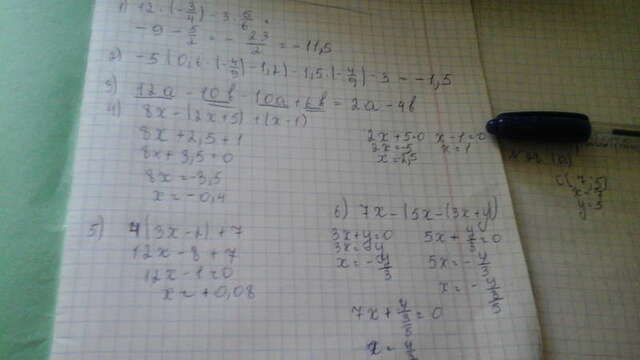 1) 12 · (-3/4) - 3 · 5/6 =
-9 - 5/2 = - 23/2 = -11,5
2) -5 (0,6 · (-4/9) - 1,2) - 1,5 · (-4/9) · 3 - -1,5
3) 12a - 10b - 10a + 6b = 2a - 4b
4) 8x - (2x + 5) + (x - 1)
8x + 2,5 + 1
8x + 3,5 = 0
8x = -3,5
x = -0,4
2x + 5 = 0 x - 1 = 0
2x = -5 x = 1
x = 2,5
y = 3
5) 4(3x - 2) + 7
12x - 8 + 7
12x - 1 = 0
x = +0,08
6) 7x - (5x - (3x + y)
3x + y = 0 5x + y/3 = 0
3x = -y 5x = -y/3
x = -y/3 x = -y/3/5
7x + y/3/5 = 0